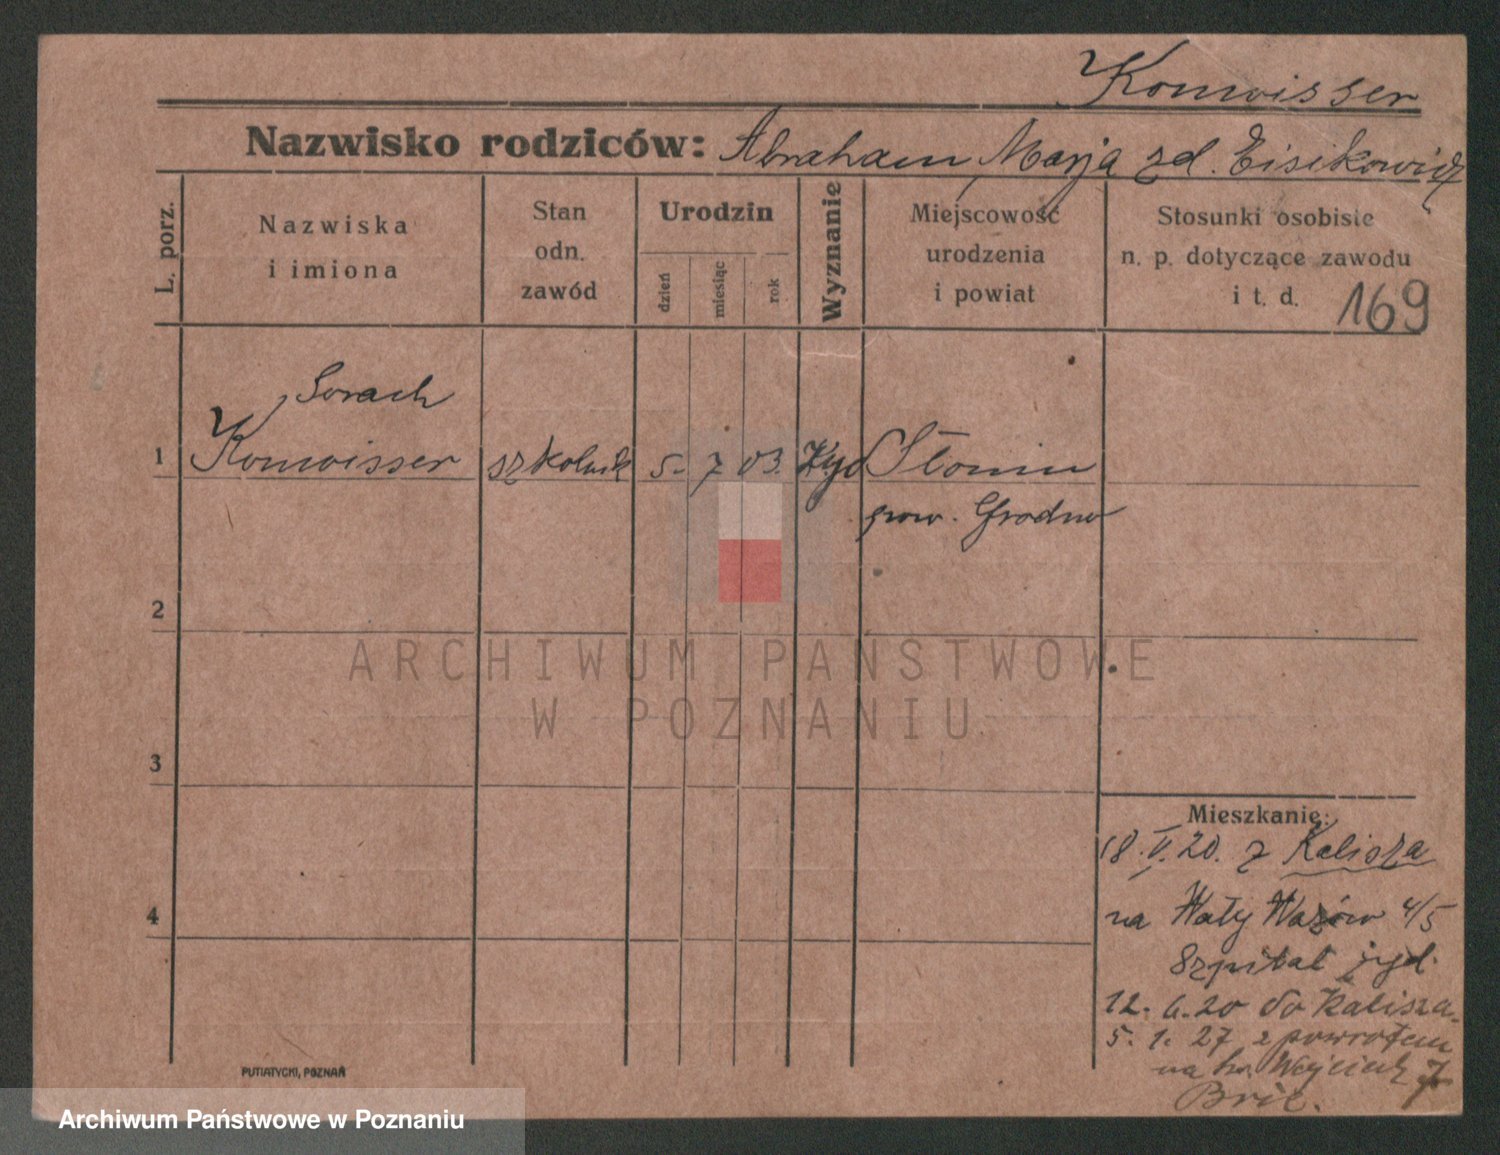 Konwisser
Nazwisko rodziców: Abraham Marja zd. Eisikowicz
L. porz.
Nazwiska
i imiona
Stan
odn.
zawód
Urodzin
dzień
miesiąc
rok
Wyznanie
Miejscowość
urodzenia
i powiat
Stosunki osobiste
n. p. dotyczące zawodu
i t. d.
169
Sorach
1 Konwisser szkolnik 5. 7 03. żyd Słonim
pow. Grodno
2
3
4
Mieszkanie:
18. V. 20. z Kalisza
na Wały Wazów 4/5
Szpital żyd.
12. 6. 20 do Kalisza.
5. 1. 27 z powrotem
na św. Wojciech 7
PUTIATYCKI, POZNAŃ
ARCHIWUM PAŃSTWOWE
W POZNANIU
Archiwum Państwowe w Poznaniu